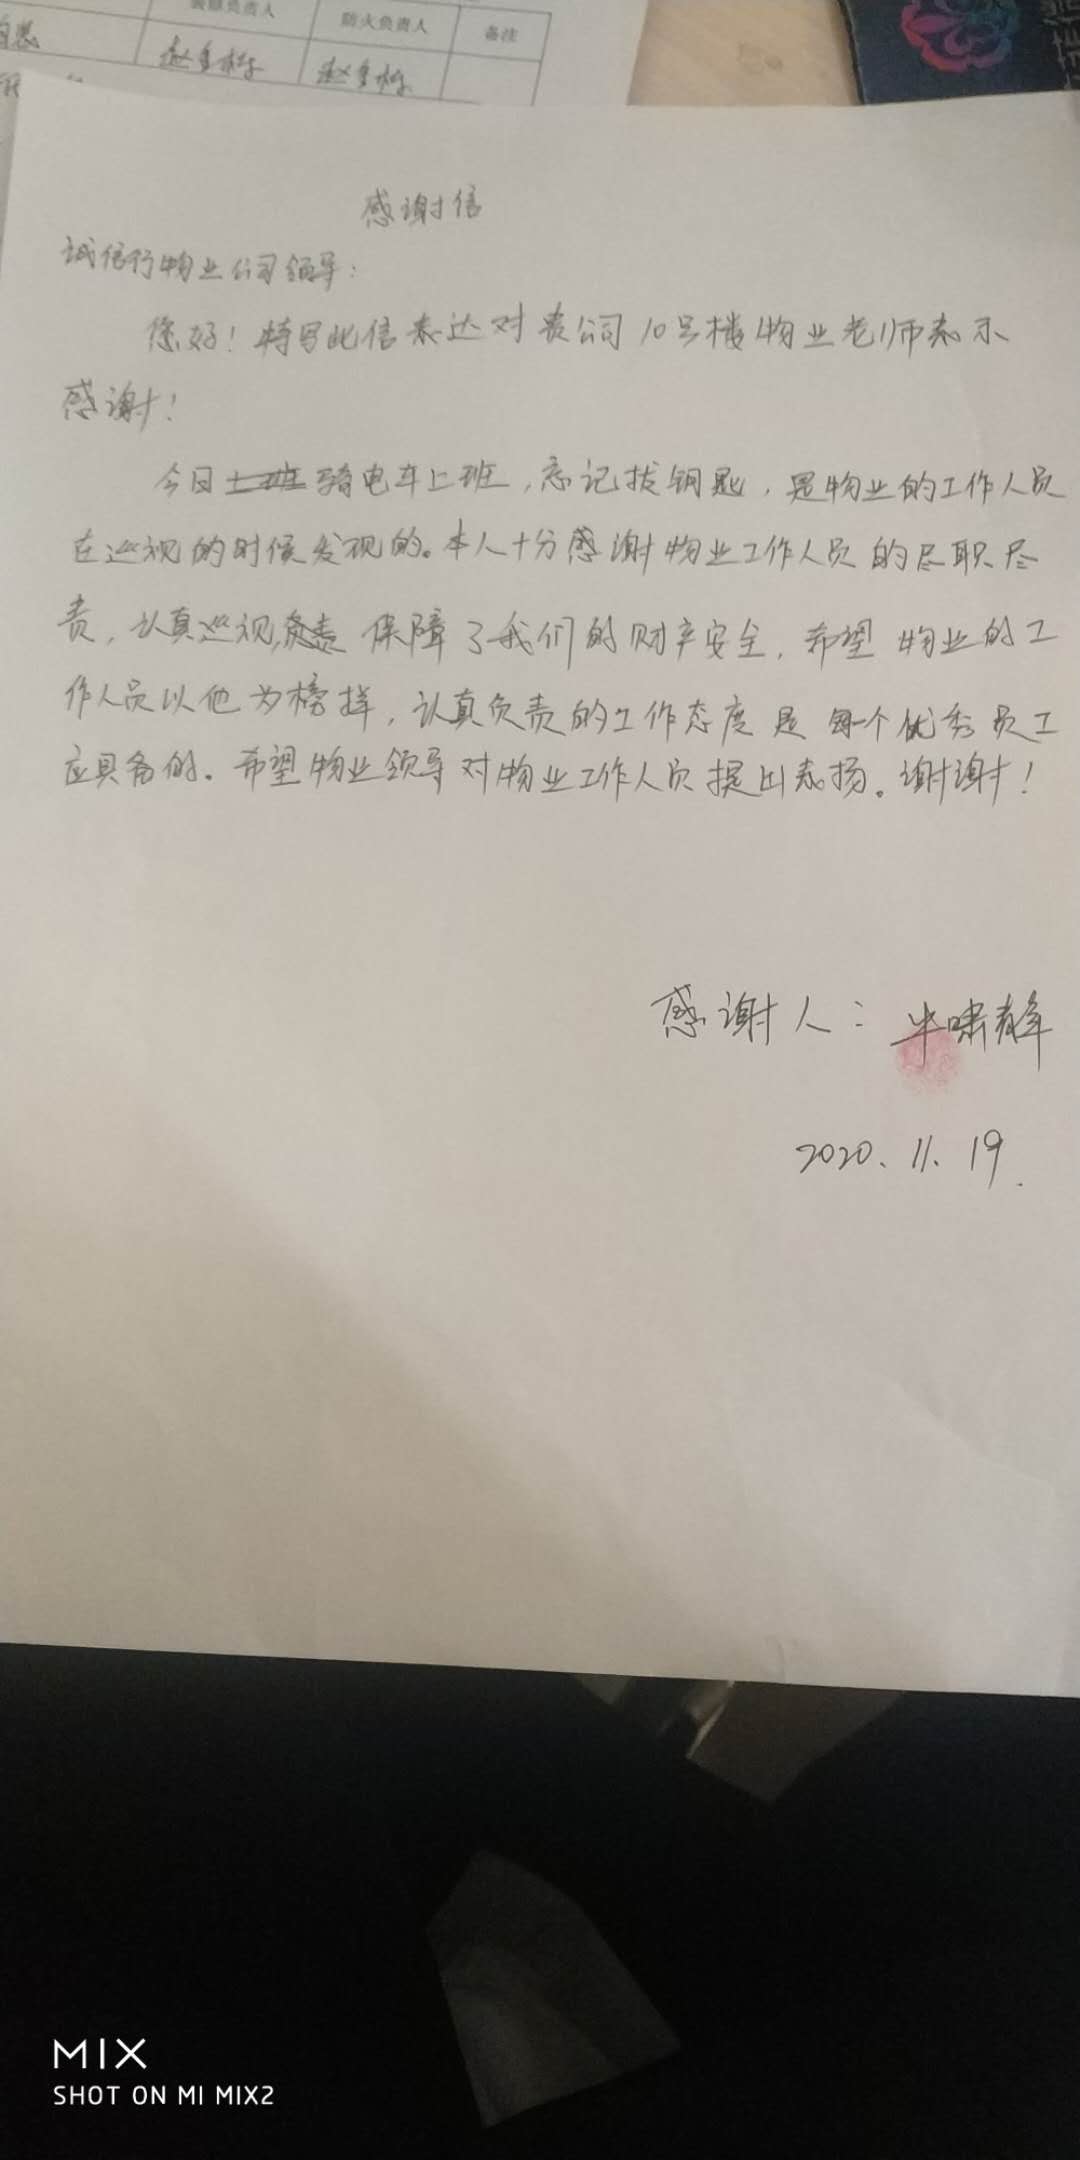 装修负责人 防火负责人 备注
感谢信
诚信行物业公司领导:
您好!特写此信表达对贵公司10号楼物业老师表示
感谢!
今日上班骑电车上班,忘记拔钥匙,是物业的工作人员
在巡视的时候发现的。本人十分感谢物业工作人员的尽职尽
责,认真巡视,负责 保障了我们的财产安全,希望 物业的工
作人员以他为榜样,认真负责的工作态度是每一个优秀员工
应具备的。希望物业领导对物业工作人员提出表扬。谢谢!
感谢人:牛啸
2020.11.19.
MIX
SHOT ON MI MIX2